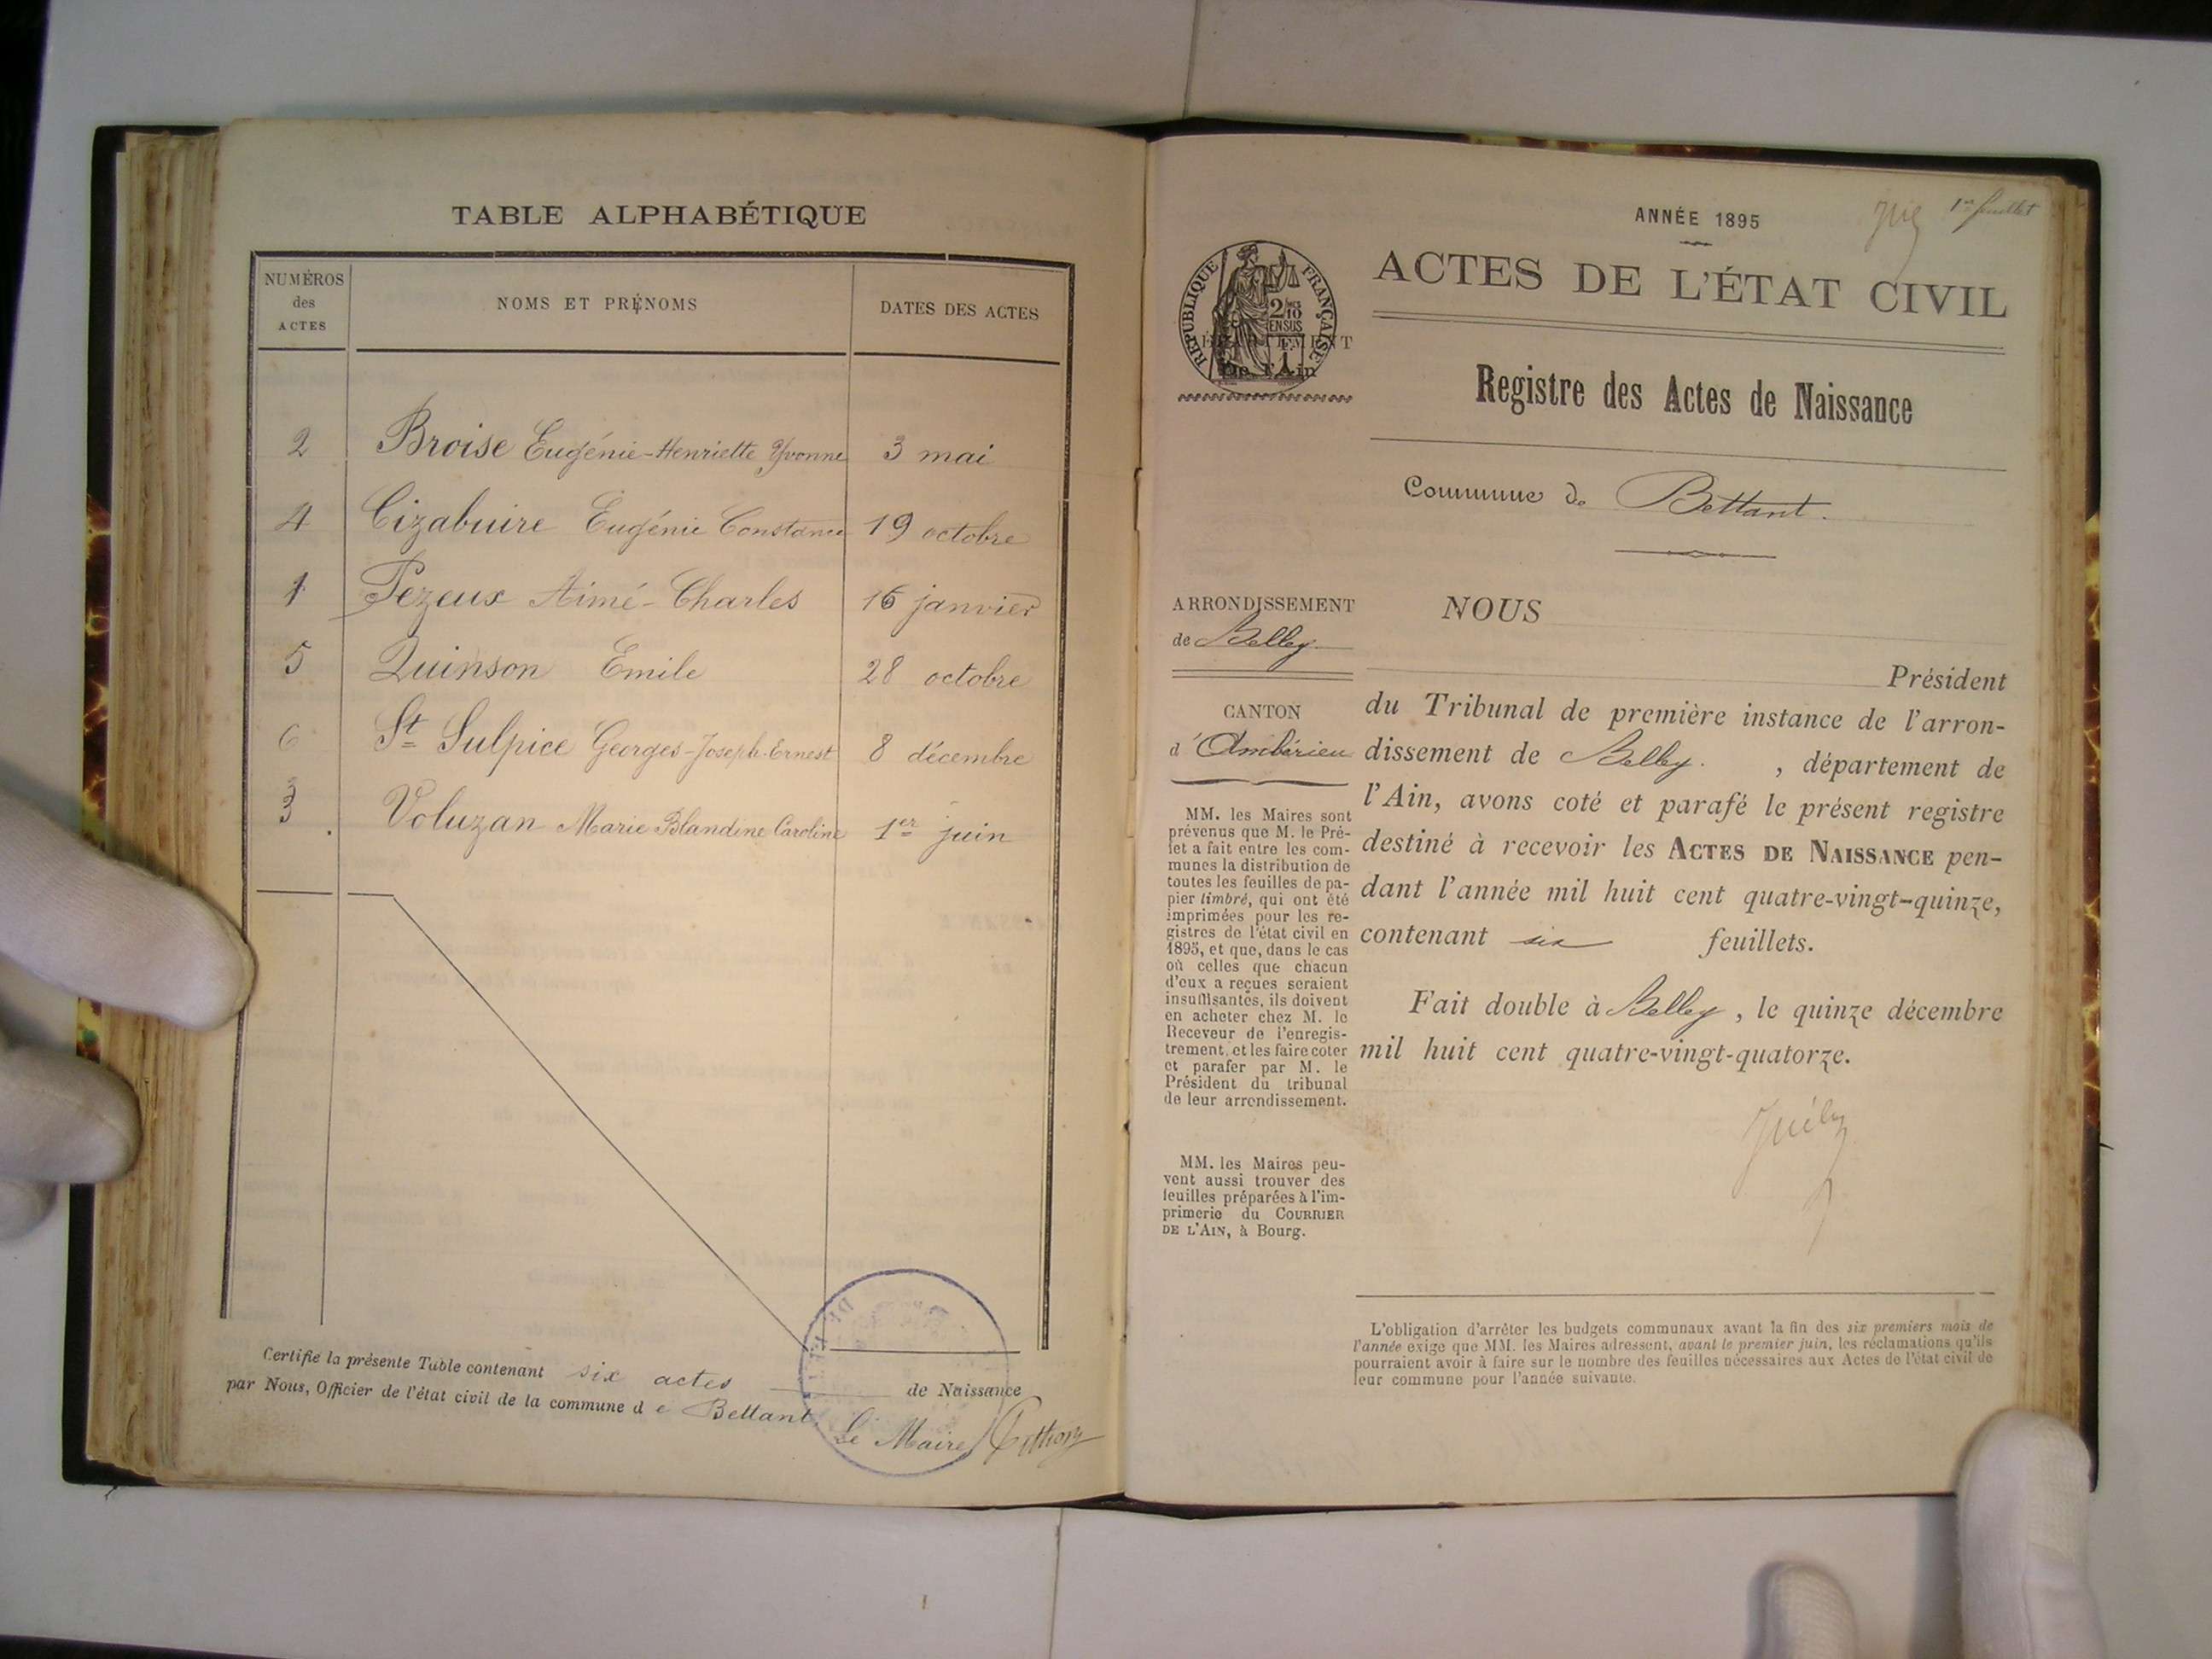 TABLE ALPHABÉTIQUE
NUMÉROS
des
ACTES
NOMS ET PRÉNOMS
DATES DES ACTES
2 Broise Eugénie-Henriette Yvonne 3 mai
4 Cizabuire Eugénie Constance 19 octobre
1 Pezeux Aimé-Charles 16 janvier
5 Quinson Emile 28 octobre
6 St Sulpice Georges-Joseph-Ernest 8 décembre
3 Voluzan Marie Blandine Caroline 1er juin
Certifié la présente Table contenant six actes de Naissance
par Nous, Officier de l'état civil de la commune d e Bettant
Le Maire
1er feuillet
ANNÉE 1895
ACTES DE L'ÉTAT CIVIL
RÉPUBLIQUE FRANÇAISE
2/10
EN SUS
DÉPARTEMENT
De l'Ain
Registre des Actes de Naissance
Commune de Bettant.
ARRONDISSEMENT
de Belley
CANTON
d'Ambérieu
MM. les Maires sont
prévenus que M. le Pré-
fet a fait entre les com-
munes la distribution de
toutes les feuilles de pa-
pier timbré, qui ont été
imprimées pour les re-
gistres de l'état civil en
1895, et que, dans le cas
où celles que chacun
d'eux a reçues seraient
insuffisantes, ils doivent
en acheter chez M. le
Receveur de l'enregis-
trement, et les faire coter
et parafer par M. le
Président du tribunal
de leur arrondissement.
MM. les Maires peu-
vent aussi trouver des
feuilles préparées à l'im-
primerie du COURRIER
DE L'AIN, à Bourg.
NOUS
Président
du Tribunal de première instance de l'arron-
dissement de Belley. , département de
l'Ain, avons coté et parafé le présent registre
destiné à recevoir les ACTES DE NAISSANCE pen-
dant l'année mil huit cent quatre-vingt-quinze,
contenant six feuillets.
Fait double à Belley, le quinze décembre
mil huit cent quatre-vingt-quatorze.
L'obligation d'arrêter les budgets communaux avant la fin des six premiers mois de
l'année exige que MM. les Maires adressent, avant le premier juin, les réclamations qu'ils
pourraient avoir à faire sur le nombre des feuilles nécessaires aux Actes de l'état civil de
leur commune pour l'année suivante.